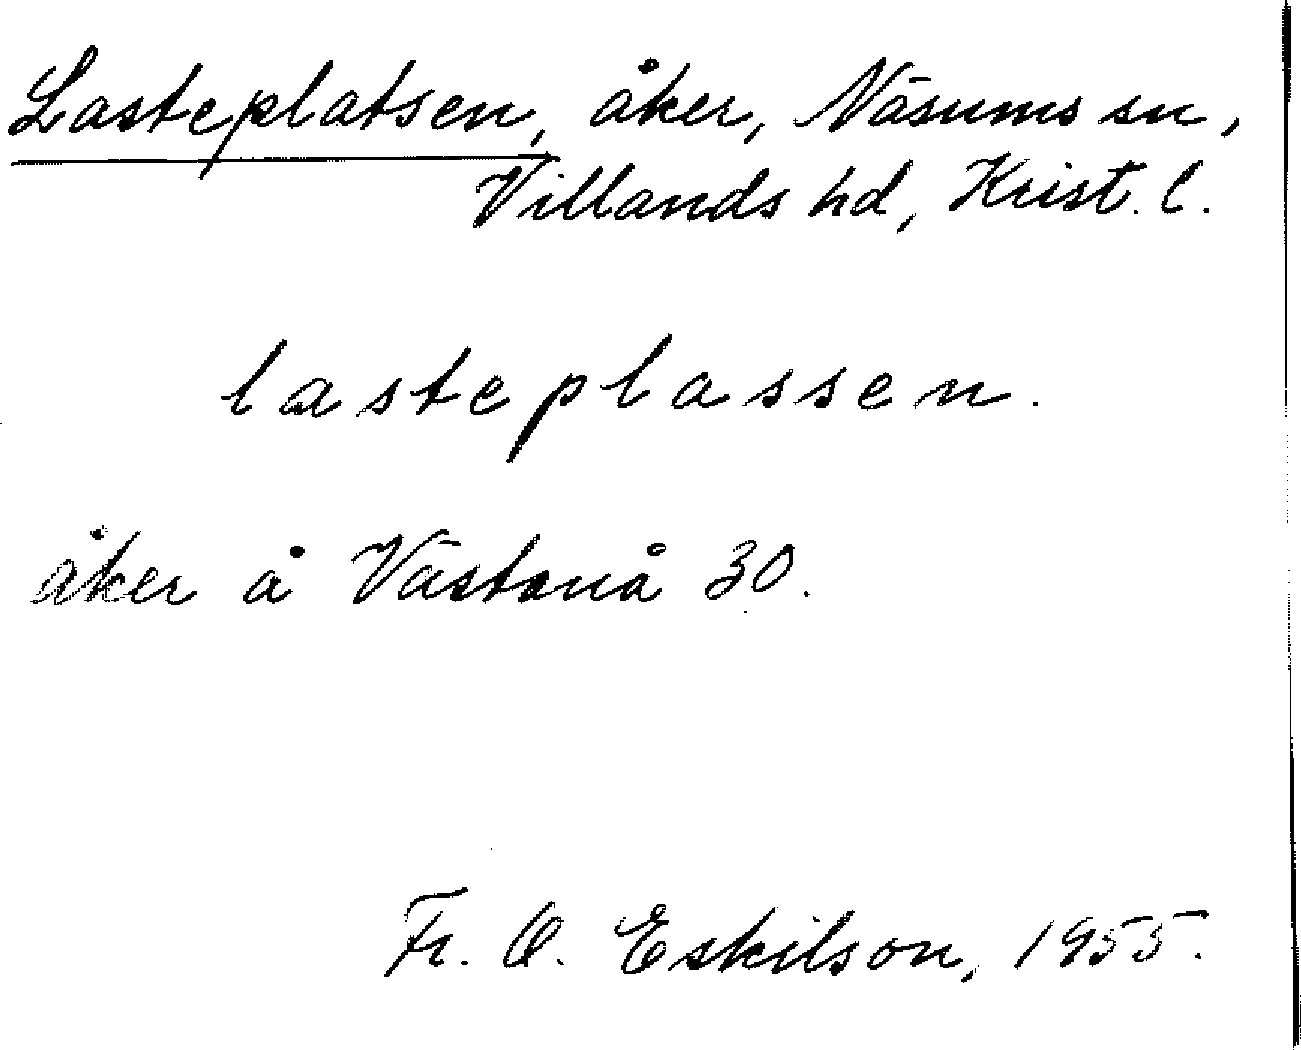 Lasteplatsen, åker, Näsums sn,
Villands hd, Krist. l.
lasteplassen.
åker å Västanå 30.
Fr. O. Eskilson, 1955.